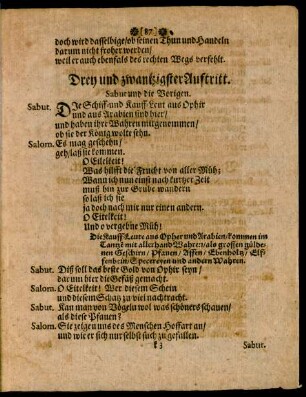 (87)
doch wird dasselbige/ob seinen Thun und Handeln
darum nicht froher werden/
weil er auch ebenfals des rechten Wegs verfehlt.
Drey und zwantzigster Auftritt.
Sabut und die Vorigen.
Sabut. DJe Schiff und Kauff-Leut aus Ophir
und aus Arabien sind hier/
und haben ihre Wahren mitgenommen/
ob sie der König wolte sehn.
Salom. Es mag geschehn/
geh/laß sie kommen.
O Eitelkeit!
Was hilfft die Frucht von aller Müh;
Wann ich nun einst nach kurtzer Zeit
muß hin zur Grube wandern
so laß ich sie
ja doch nach mir nur einen andern.
O Eitelkeit!
Und o vergebne Müh!
Die Kauff-Leute aus Ophir und Arabien/kommen im
Tantze mit allerhand Wahren/als grossen gülde-
nen Geschirn/Pfauen/Affen/Ebenholtz/Elf-
fenbein/Specereyen und andern Wahren.
Sabut. Diß soll das beste Gold von Ophir seyn/
daraus hier die Gefäß gemacht.
Salom. O Eitelkeit! Wer diesem Schein
und diesem Schatz zu viel nachtracht.
Sabut. Kan man von Vögeln wol was schöners schauen/
als diese Pfauen?
Salom. Sie zeigen uns des Menschen Hoffart an/
und wie er sich nur selbst sucht zu gefallen.
Sabut.